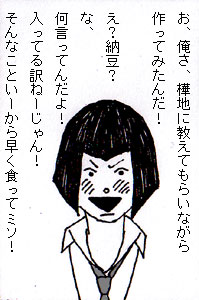 お、俺さ、樺地に教えてもらいながら
作ってみたんだ！
え？納豆？
な、
何言ってんだよ！
入ってる訳ねーじゃん！
そんなこといーから早く食ってミソ！